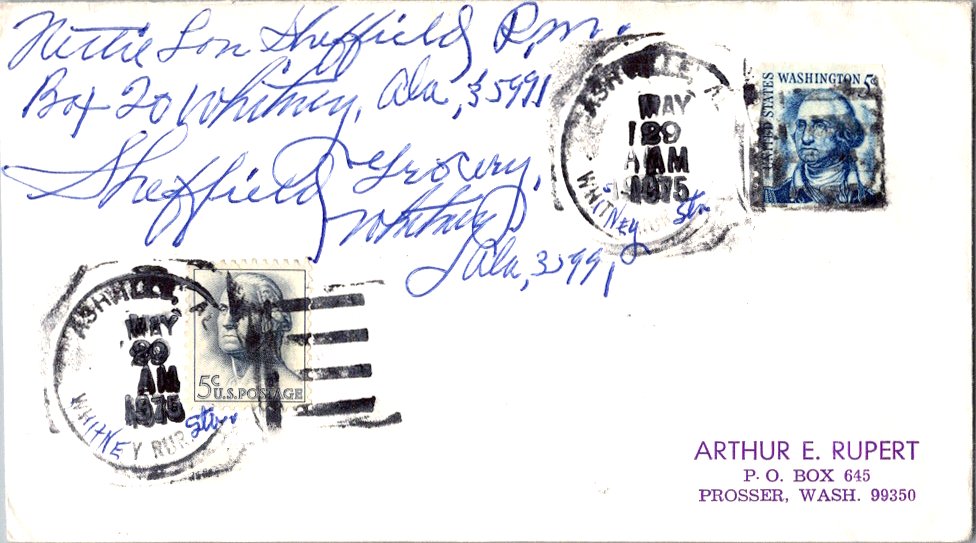 Nettie Lou Sheffield P.m.
Box 20 Whitney, Ala, 35991
Sheffield Grocery,
Whitney
Ala, 35991
ASHVILLE, AL
MAY
29
AM
1975
WHITNEY RUR. Sta.
UNITED STATES
WASHINGTON 5¢
ASHVILLE, AL
MAY
29
AM
1975
WHITNEY RUR. Sta.
5¢
U.S. POSTAGE
ARTHUR E. RUPERT
P. O. BOX 645
PROSSER, WASH. 99350